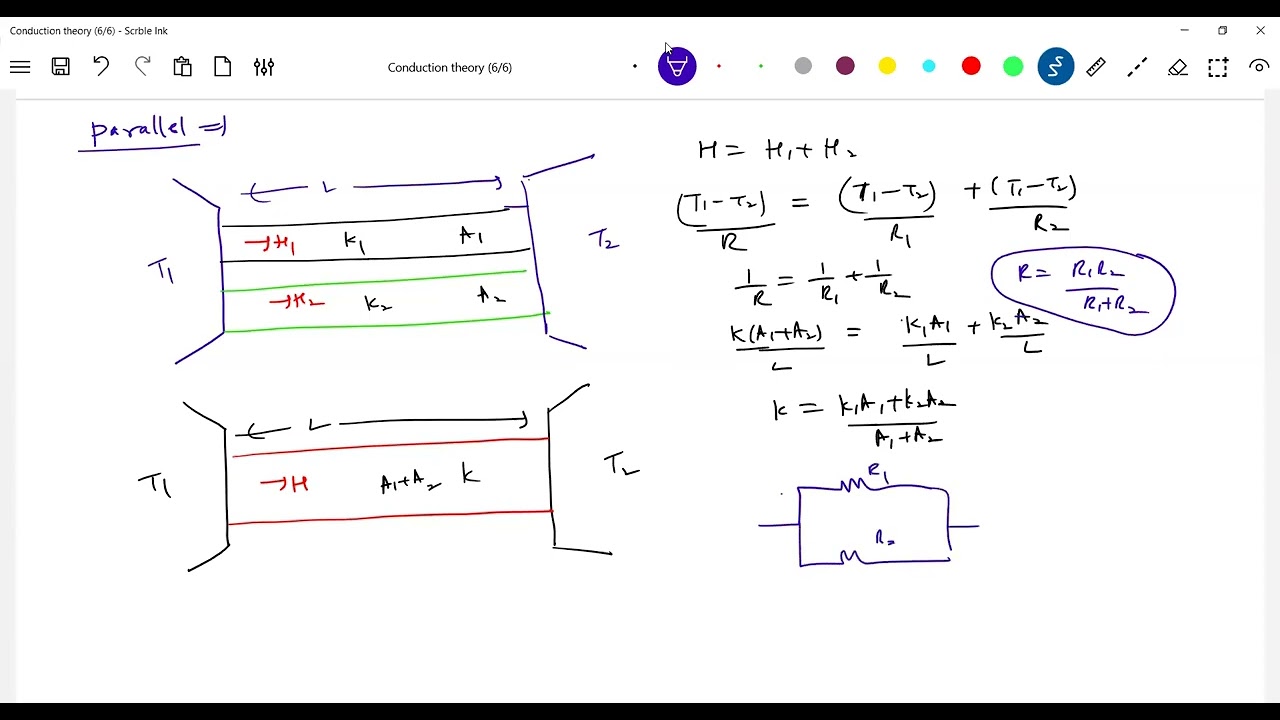 Conduction theory (6/6) - Scrble Ink
Conduction theory (6/6)
parallel ⇒
L
T₁ → H₁ K₁ A₁ T₂
→ H₂ K₂ A₂
L
T₁ → H A₁+A₂ K T₂
H = H₁ + H₂
(T₁-T₂)/R = (T₁-T₂)/R₁ + (T₁-T₂)/R₂
1/R = 1/R₁ + 1/R₂
R = R₁R₂/R₁+R₂
K(A₁+A₂)/L = K₁A₁/L + K₂A₂/L
K = K₁A₁+K₂A₂/A₁+A₂
R₁
R₂